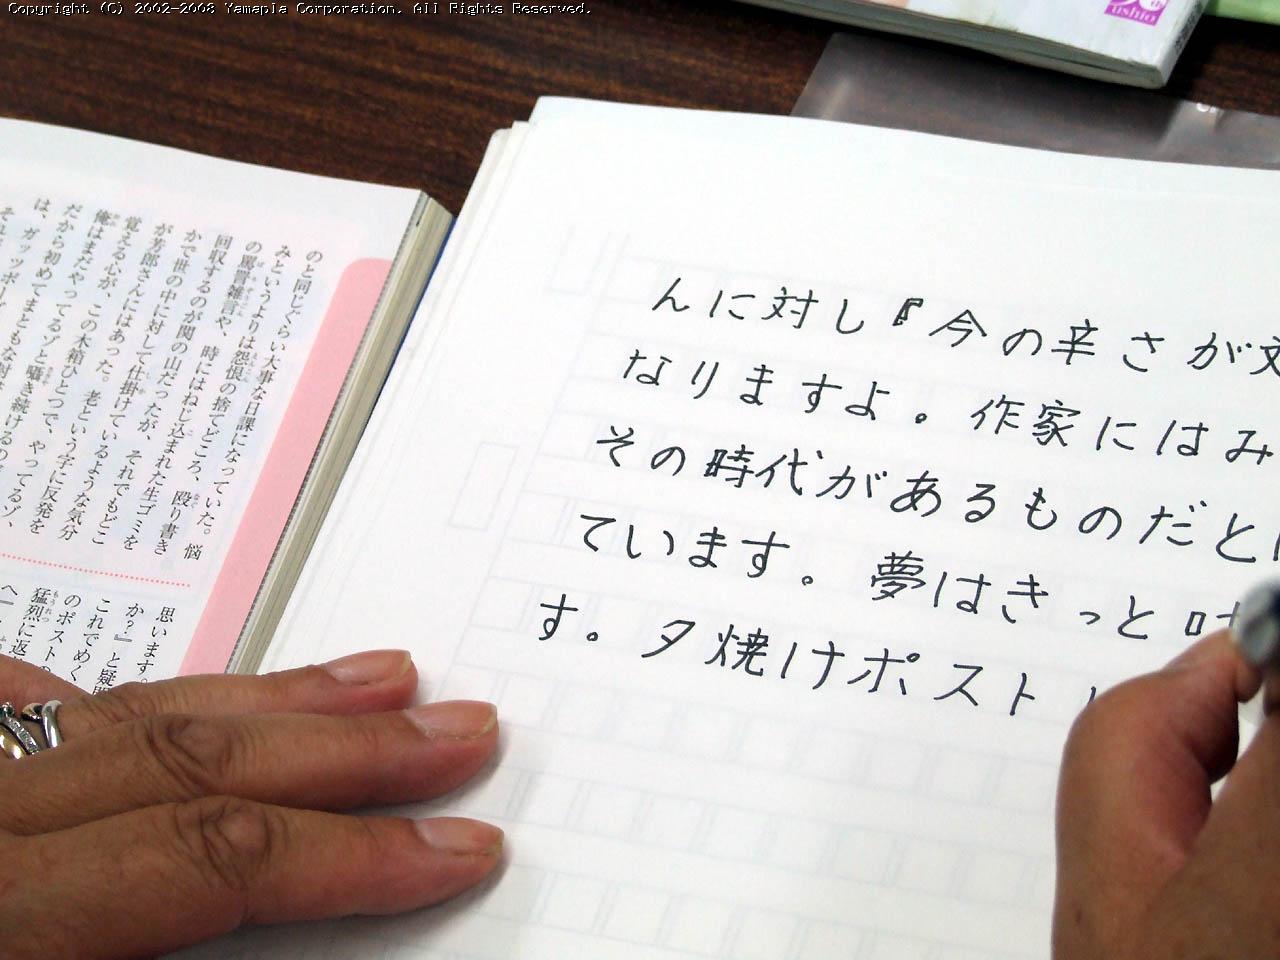 Copyright (C) 2002-2008 Yamapla Corporation. All Rights Reserved.
ushio
のと同じぐらい大事な日課になっていた。悩
みというよりは怨恨の捨てどころ、殴り書き
の罵詈雑言や、時にはねじ込まれた生ゴミを
回収するのが関の山だったが、それでもどこ
かで世の中に対して仕掛けているような気分
が芳郎さんにはあった。老という字に反発を
覚える心が、この木箱ひとつで、やってるゾ、
俺はまだやってるゾと囁き続けるの
だから初めてまともな
は、ガッツポー
思います。
か？』と疑問
これでめく
のポストの
猛烈に返
へ
んに対し『今の辛さが文
なりますよ。作家にはみ
その時代があるものだと
ています。夢はきっと叶
す。夕焼けポスト